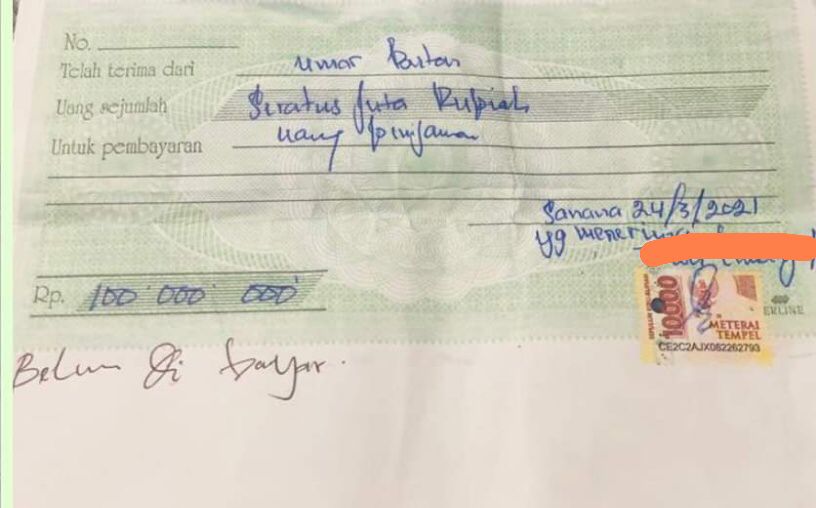 No.
Telah terima dari Umar Buton
Uang sejumlah Seratus Juta Rupiah
Untuk pembayaran uang pinjaman
Sanana 24/3/2021
yg menerima
Rp. 100 000 000
10000
METERAI
TEMPEL
CE2C2AJX062262793
ERLINE
Belum di bayar.